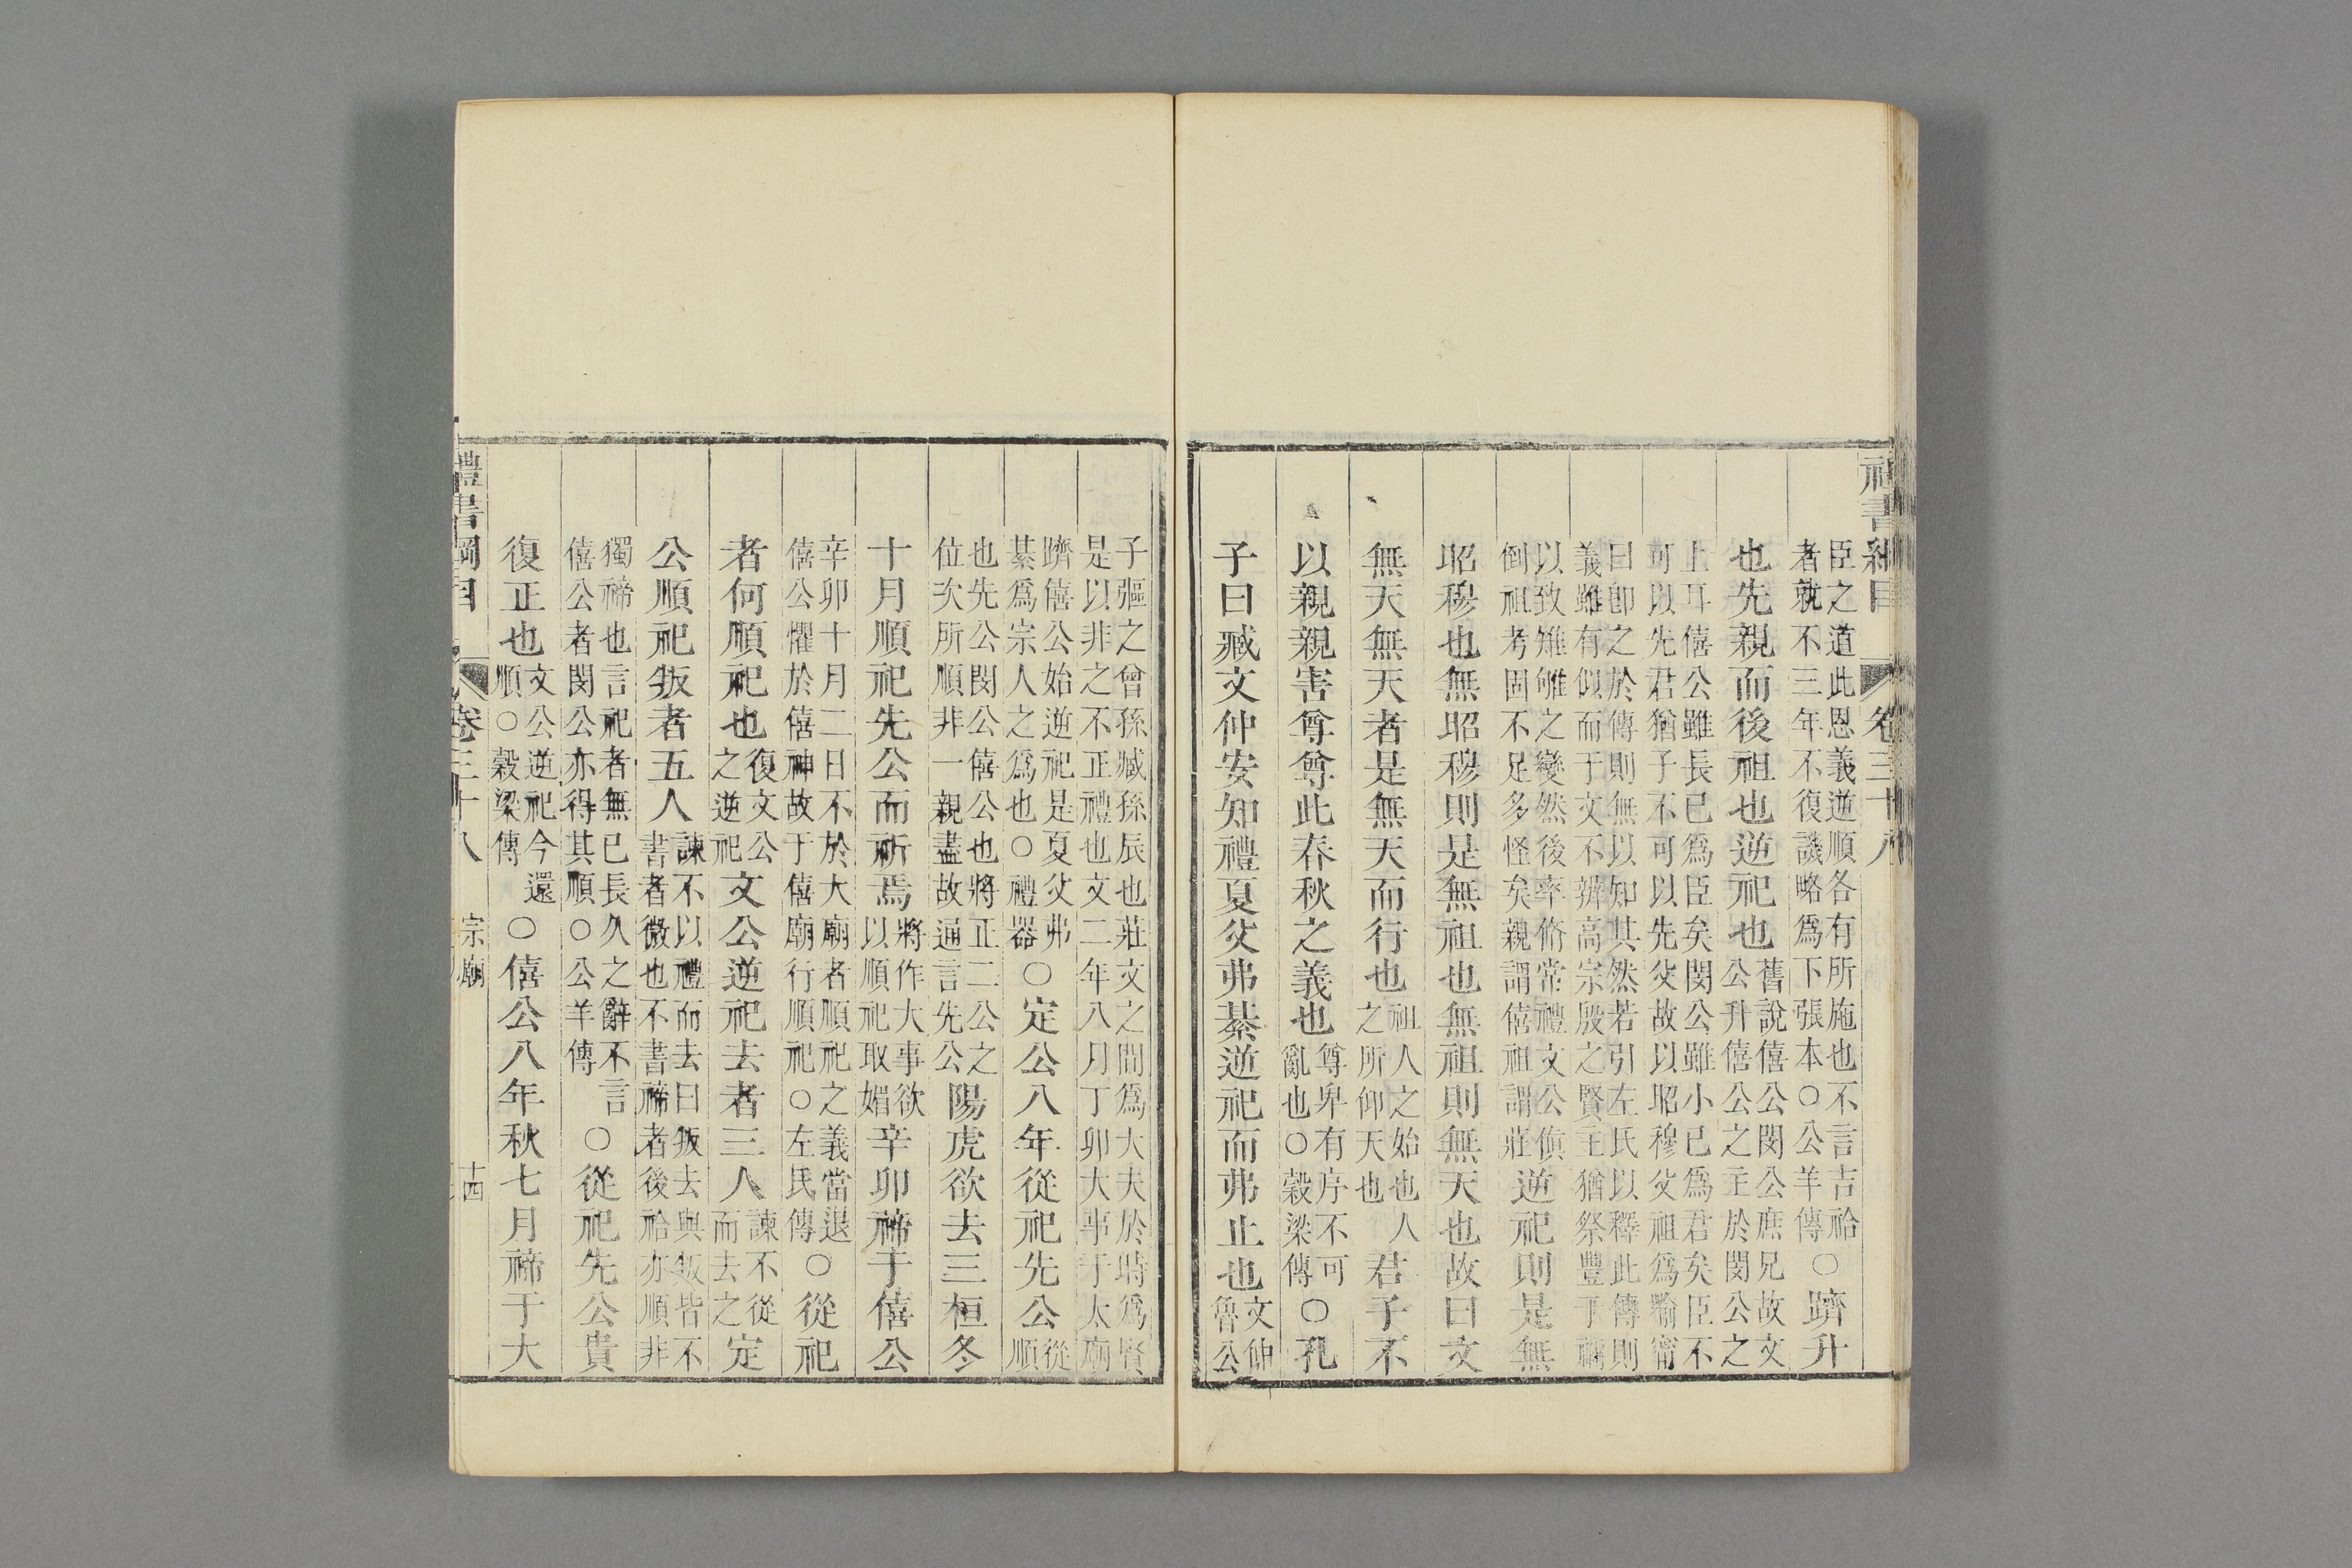 禮書綱目 卷三十八
臣之道此恩義逆順各有所施也不言吉祫
者就不三年不復譏略爲下張本○公羊傳
○躋升
也先親而後祖也逆祀也
舊說僖公閔公庶兄故文
公升僖公之主於閔公之
上耳僖公雖長已爲臣矣閔公雖小已爲君矣臣不
可以先君猶子不可以先父故以昭穆父祖爲喻甯
曰卽之於傳則無以知其然若引左氏以釋此傳則
義雖有似而于文不辨高宗殷之賢主猶祭豐于禰
以致雉雊之變然後率脩常禮文公傎
倒祖考固不足多怪矣親謂僖祖謂莊
逆祀則是無
昭穆也無昭穆則是無祖也無祖則無天也故曰文
無天無天者是無天而行也
祖人之始也人
之所仰天也
君子不
以親親害尊尊此春秋之義也
尊卑有序不可
亂也○穀梁傳
○孔
子曰臧文仲安知禮夏父弗綦逆祀而弗止也
文仲
魯公
子彄之曾孫臧孫辰也莊文之間爲大夫於時爲賢
是以非之不正禮也文二年八月丁卯大事于太廟
躋僖公始逆祀是夏父弗
綦爲宗人之爲也○禮器
○定公八年從祀先公
從
順
也先公閔公僖公也將正二公之
位次所順非一親盡故通言先公
陽虎欲去三桓冬
十月順祀先公而祈焉
將作大事欲
以順祀取媚
辛卯禘于僖公
辛卯十月二日不於大廟者順祀之義當退
僖公懼於僖神故于僖廟行順祀○左氏傳
○從祀
者何順祀也
復文公
之逆祀
文公逆祀去者三人
諫不從
而去之
定
公順祀叛者五人
諫不以禮而去曰叛去與叛皆不
書者微也不書禘者後祫亦順非
獨禘也言祀者無已長久之辭不言
僖公者閔公亦得其順○公羊傳
○從祀先公貴
復正也
文公逆祀今還
順○穀梁傳
○僖公八年秋七月禘于大
禮書綱目 卷三十八 宗廟 十四